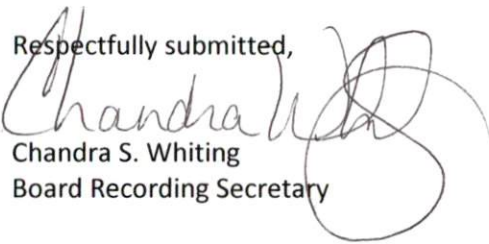 Respectfully submitted,
Chandra
Chandra S. Whiting
Board Recording Secretary